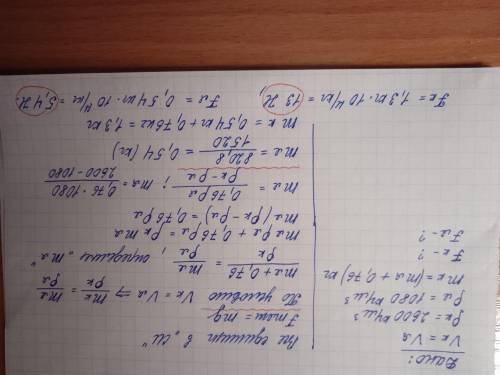 Дано:
Vк = Vл
ρк = 2600 кг/м³
ρл = 1080 кг/м³
mк = (mл + 0,76) кг
Fк - ?
Fл - ?
Все единицы в "СИ"
Fтяж = mg
По условию Vк = Vл ⇒ mк/ρк = mл/ρл
(mл + 0,76)/ρк = mл/ρл ; определим "mл"
mл ρл + 0,76 ρл = ρк mл
mл (ρк - ρл) = 0,76 ρл
mл = 0,76 ρл/(ρк - ρл) ; mл = 0,76 · 1080/(2600 - 1080)
mл = 820,8/1520 = 0,54 (кг)
mк = 0,54 кг + 0,76 кг = 1,3 кг
Fк = 1,3 кг · 10 Н/кг = 13 Н , Fл = 0,54 кг · 10 Н/кг = 5,4 Н.